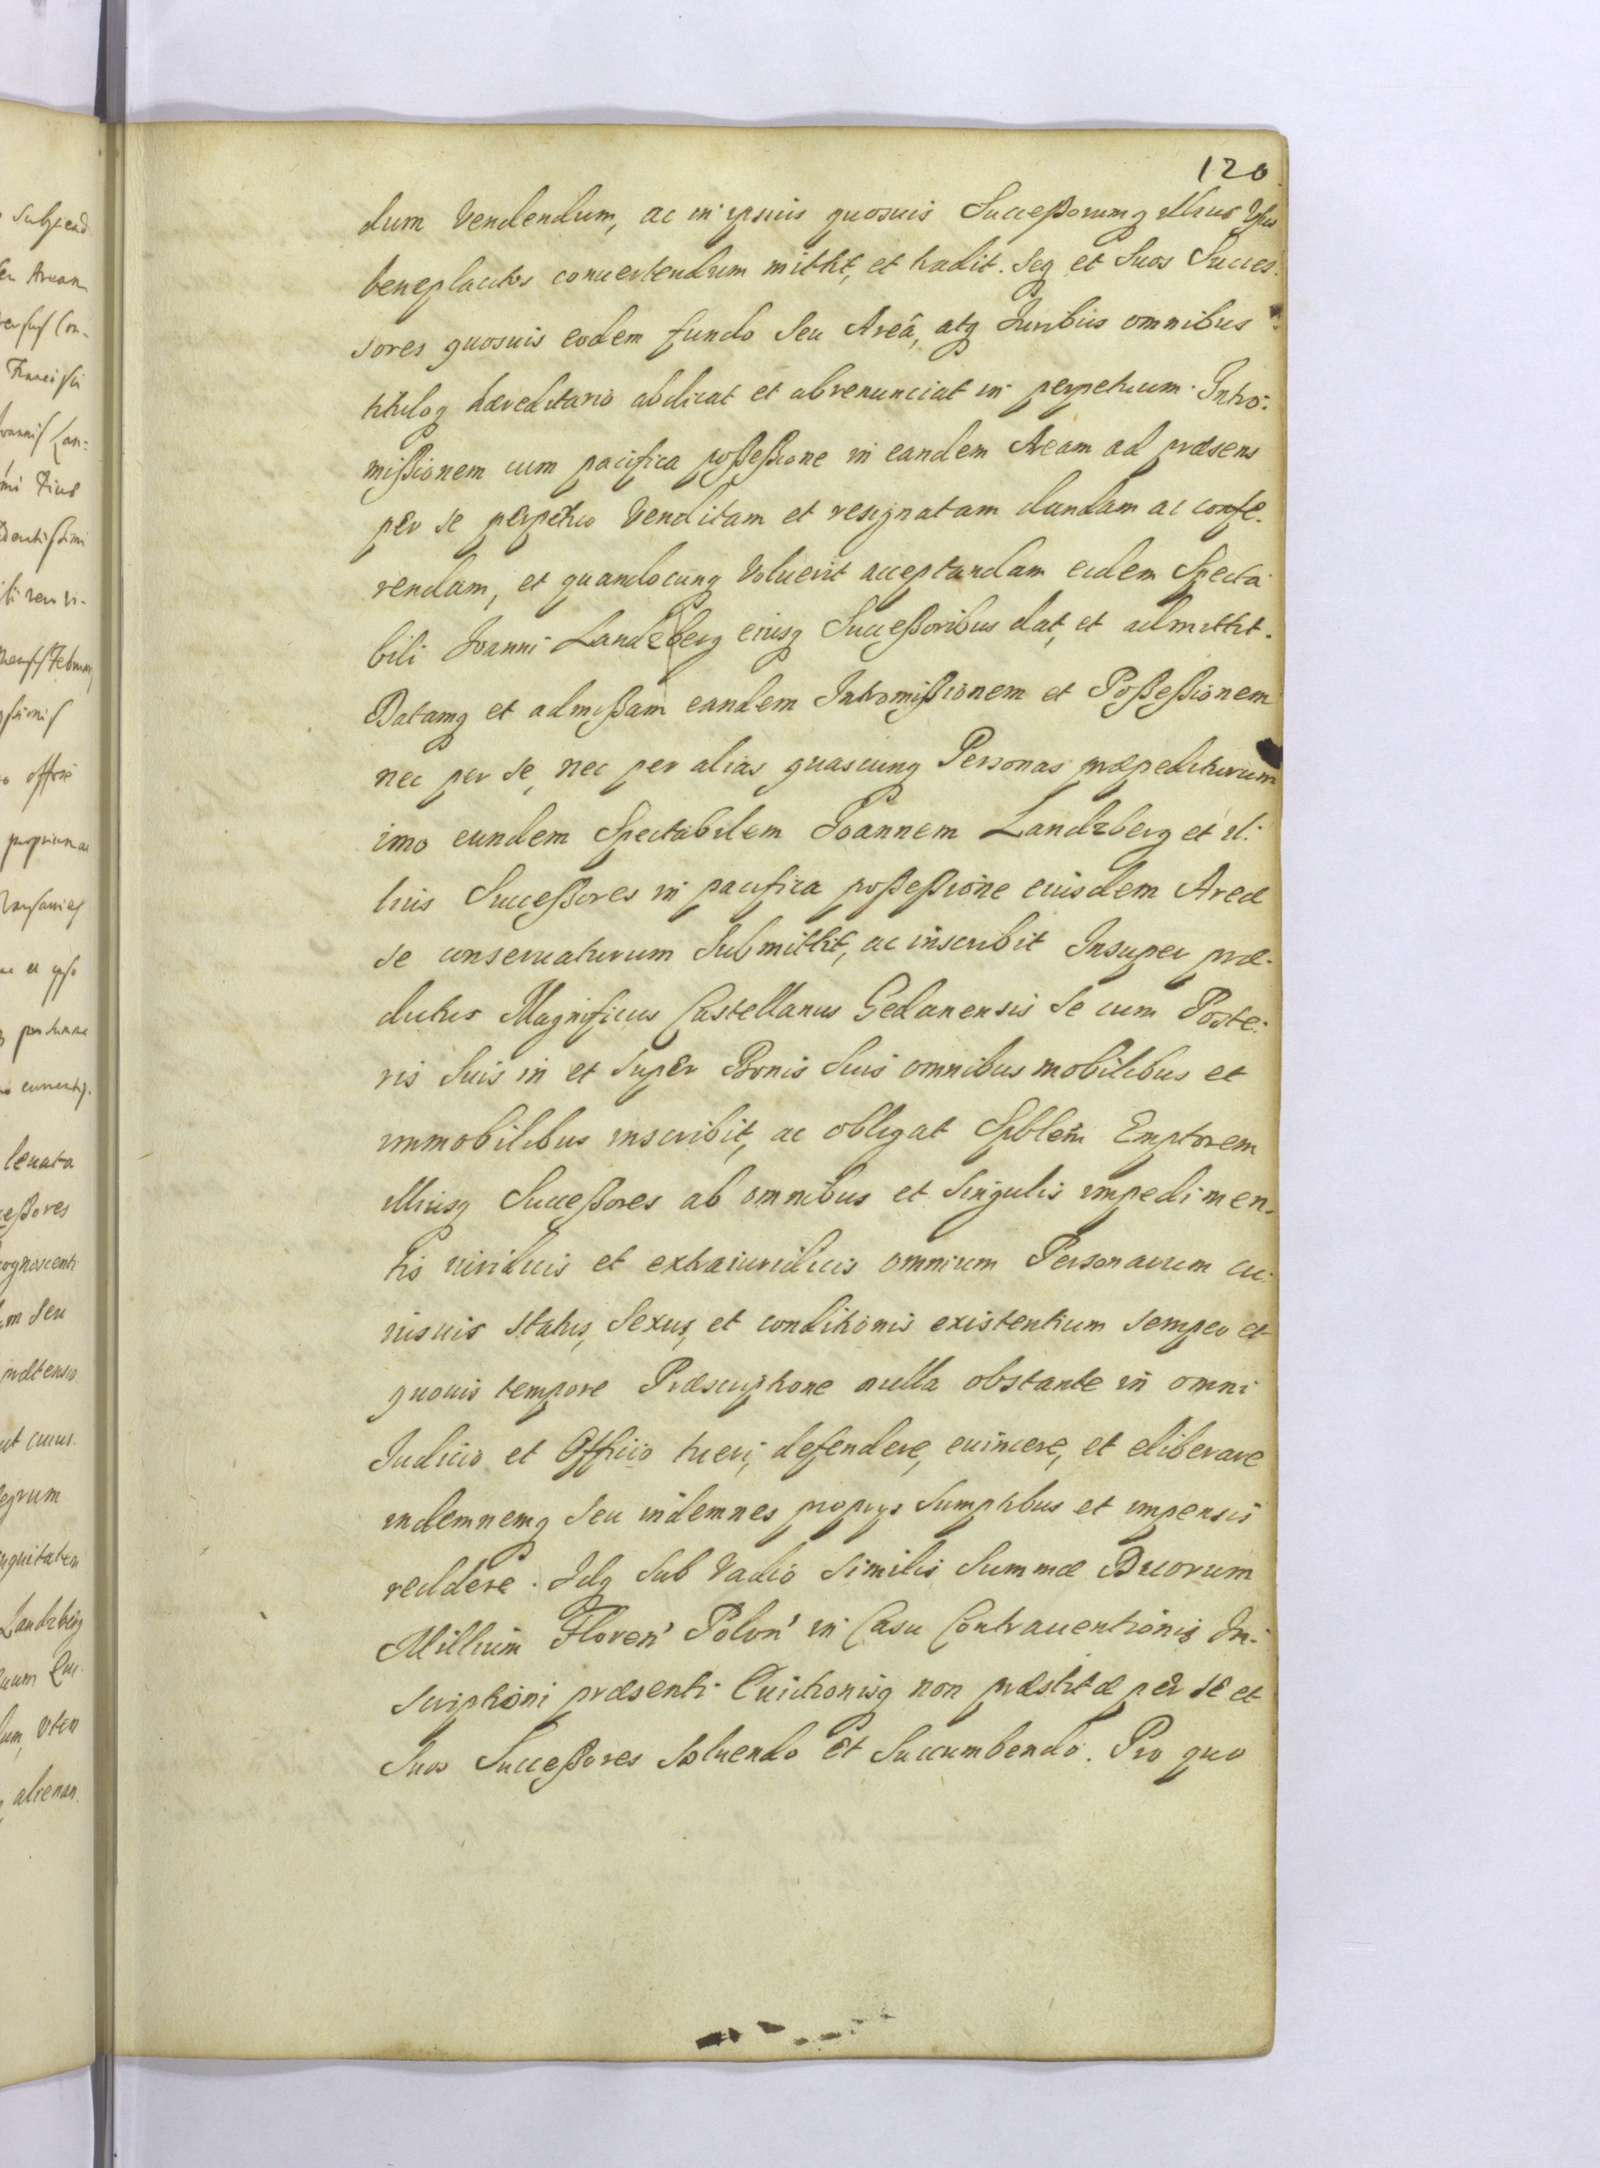 120
dum Vendendum, ac in ipsius quosuis Successorumq illius Usus
beneplacitos conuertendum mittit, et tradit. Seq et Suos Succes
sores quosuis eodem fundo Seu Areâ, atq Iuribus omnibus
tituloq hæreditario abdicat et abrenunciat in perpetuum. Intro:
missionem cum pacifica possessione in eandem Aream ad præsens
per se perpetuo Venditam et resignatam dandam ac confe:
rendam, et quandocunq Voluerit acceptandam eidem Specta
bili Ioanni Landzberg eiusq Successoribus dat, et admittit.
Datamq et admissam eandem Intromissionem et Possessionem
nec per se, nec per alias quascunq Personas præpediturum
imo eundem Spectabilem Ioannem Landzberg et il:
lius Successores in pacifica possessione eiusdem Areæ
se conseruaturum Submittit, ac inscribit Insuper præ:
dictus Magnificus Castellanus Gedanensis Se cum Poste:
ris Suis in et super Bonis Suis omnibus mobilibus et
immobilibus inscribit, ac obligat Spblem Emptorem
illiusq Successores ab omnibus et Singulis impedimen:
tis iuridicis et extraiuridicis omnium Personarum cu:
iusuis status, Sexus, et conditionis existentium semper et
quouis tempore Præscriptione nulla obstante in omni
Iudicio et Officio tueri, defendere, euincere, et eliberare
indemnemq Seu indemnes proprys Sumptibus et impensis
reddere. Idq Sub Vadio similis Summæ Duorum
Millium Floren' Polon' in Casu Contrauentionis In:
scriptioni præsenti Euictionisq non præstitæ per se et
Suos Successores Soluendo et Succumbendo. Pro quo